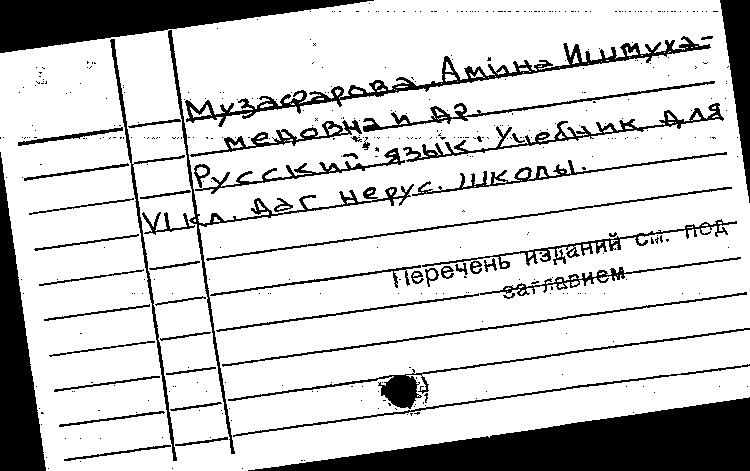 Музафарова, Амина Ишмуха-
медовна и др.
Русский язык: Учебник для
VI кл. даг нерус. школы.
Перечень изданий см. под
заглавием